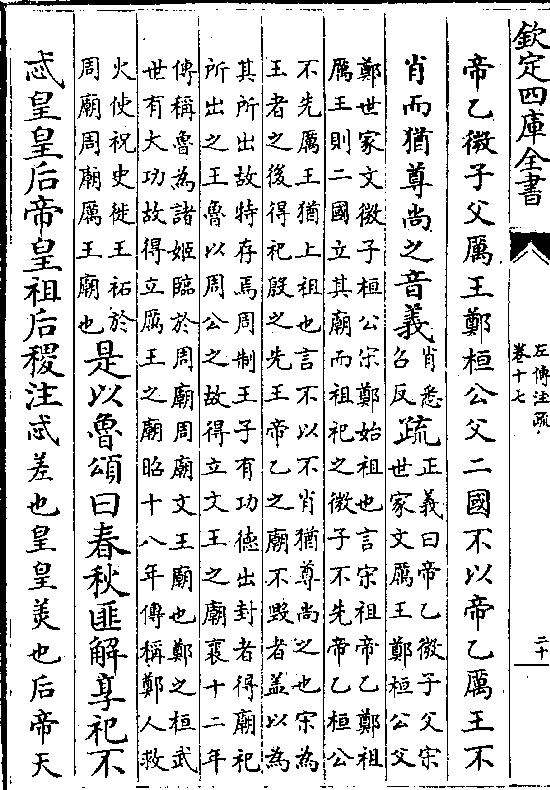 欽定四庫全書
左傳注疏
卷十七
二十
帝乙微子父厲王鄭桓公父二國不以帝乙厲王不
肖而猶尊尚之音義
肖悉
召反
疏
正義曰帝乙微子父宋
世家文厲王鄭桓公父
鄭世家文微子桓公宋鄭始祖也言宋祖帝乙鄭祖
厲王則二國立其廟而祖祀之微子不先帝乙桓公
不先厲王猶上祖也言不以不肖猶尊尚之也宋為
王者之後得祀殷之先王帝乙之廟不毀者盖以為
其所出故特存焉周制王子有功徳出封者得廟祀
所出之王魯以周公之故得立文王之廟襄十二年
傳稱魯為諸姬臨於周廟周廟文王廟也鄭之桓武
世有大功故得立厲王之廟昭十八年傳稱鄭人救
火使祝史徙王祏於
周廟周廟厲王廟也
是以魯頌曰春秋匪解享祀不
忒皇皇后帝皇祖后稷注忒差也皇皇美也后帝天